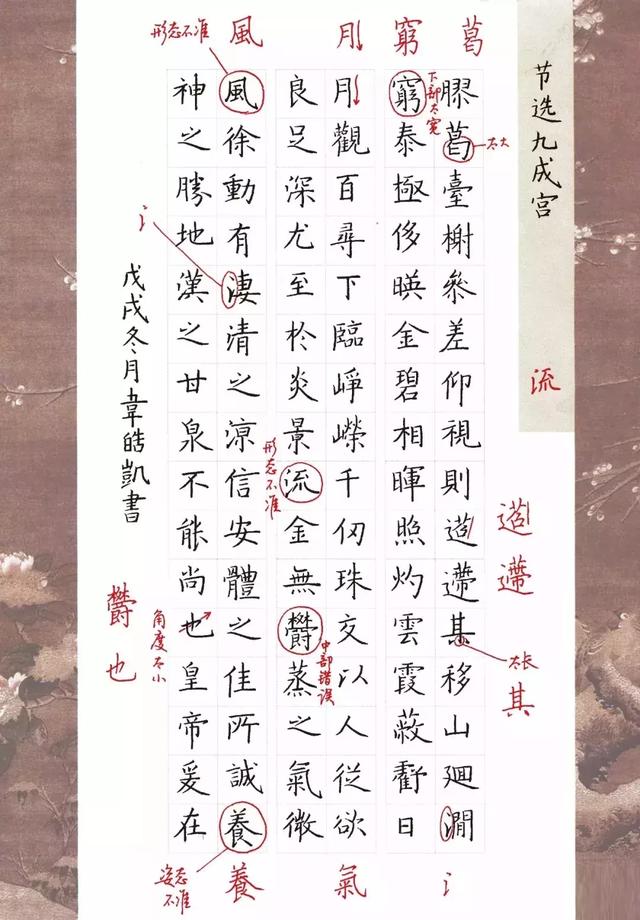 节选九成宫
膠葛臺榭叅差仰視則迢遰其移山迴澗
窮泰極侈暎金碧相暉照灼雲霞蔽虧日
月觀百尋下臨崢嶸千仞珠交以人從欲
良足深尤至於炎景流金無鬱蒸之氣微
風徐動有淒清之涼信安體之佳所誠養
神之勝地漢之甘泉不能尚也皇帝爰在
戊戌冬月韋皓凱書
葛
窮
月
風
形态不准
下部太宽
太大
流
迢
遰
太长
其
氵
形态不准
中部错误
氵
氣
養
姿态不准
角度太小
鬱
也